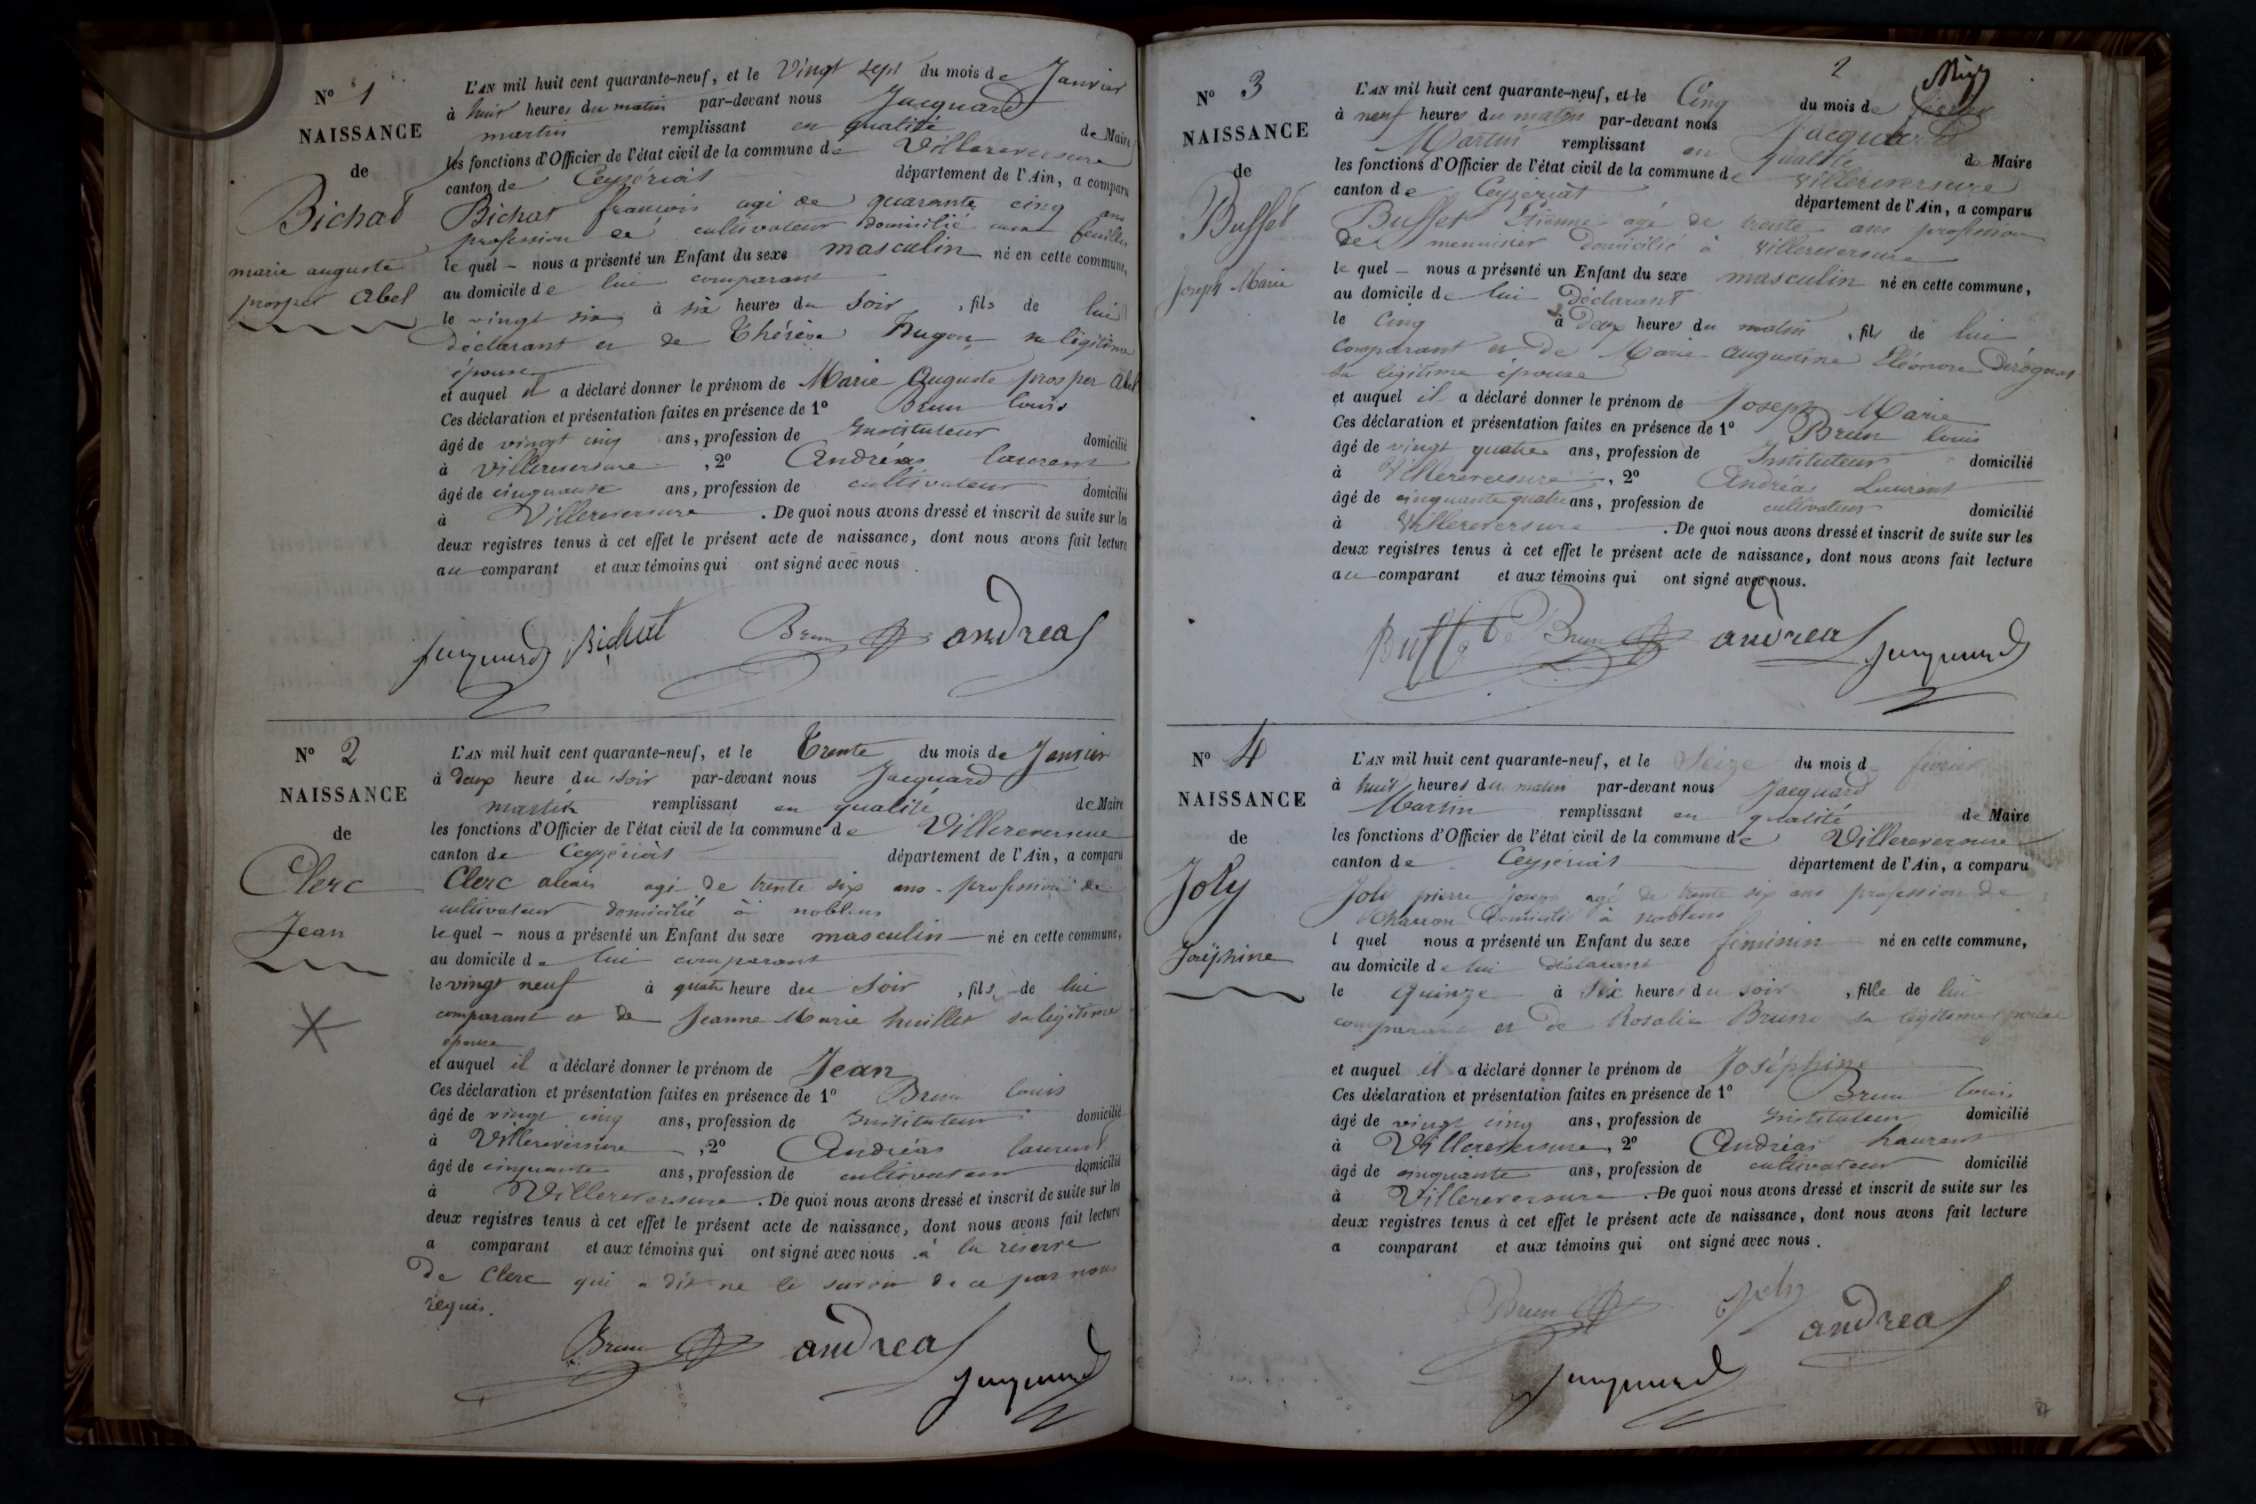 N° 1
NAISSANCE
de
Bichat
marie auguste
prosper Abel
L'AN mil huit cent quarante-neuf, et le Vingt sept du mois de Janvier
à huit heures du matin par-devant nous Jacquard
martin remplissant en qualité de Maire
les fonctions d'Officier de l'état civil de la commune de Villereversure
canton de Ceyzériat département de l'Ain, a comparu
Bichat francois agé de quarante cinq ans
profession de cultivateur domicilié
le quel - nous a présenté un Enfant du sexe masculin né en cette commune,
au domicile de lui comparant
le vingt six à six heures du soir, fils de lui
déclarant et de Thérèse Hugon sa légitime
épouse
et auquel il a déclaré donner le prénom de Marie Auguste prosper Abel
Ces déclaration et présentation faites en présence de 1° Brun louis
âgé de vingt cinq ans, profession de Instituteur domicilié
à Villereversure, 2° Andréas laurent
âgé de cinquante ans, profession de cultivateur domicilié
à Villereversure. De quoi nous avons dressé et inscrit de suite sur les
deux registres tenus à cet effet le présent acte de naissance, dont nous avons fait lecture
au comparant et aux témoins qui ont signé avec nous
Jacquard Bichat Brun andréas
N° 2
NAISSANCE
de
Clerc
Jean
L'AN mil huit cent quarante-neuf, et le Trente du mois de Janvier
à deux heure du soir par-devant nous Jacquard
martin remplissant en qualité de Maire
les fonctions d'Officier de l'état civil de la commune de Villereversure
canton de Ceyzériat département de l'Ain, a comparu
Clerc alexis agé de trente six ans profession de
cultivateur domicilié à noblens
le quel - nous a présenté un Enfant du sexe masculin né en cette commune,
au domicile de lui comparant
le vingt neuf à quatre heure du soir, fils de lui
comparant et de Jeanne Marie huillet sa légitime
épouse
et auquel il a déclaré donner le prénom de Jean
Ces déclaration et présentation faites en présence de 1° Brun louis
âgé de vingt cinq ans, profession de Instituteur domicilié
à Villereversure, 2° Andréas laurent
âgé de cinquante ans, profession de cultivateur domicilié
à Villereversure. De quoi nous avons dressé et inscrit de suite sur les
deux registres tenus à cet effet le présent acte de naissance, dont nous avons fait lecture
a comparant et aux témoins qui ont signé avec nous à la réserve
de Clerc qui a dit ne le savoir de ce par nous
requis.
Brun andréas
Jacquard
2
N° 3
NAISSANCE
de
Buffet
Joseph Marie
L'AN mil huit cent quarante-neuf, et le Cinq du mois de février
à neuf heures du matin par-devant nous Jacquard
Martin remplissant en qualité de Maire
les fonctions d'Officier de l'état civil de la commune de Villereversure
canton de Ceyzériat département de l'Ain, a comparu
Buffet Etienne agé de trente ans profession
de menuisier domicilié à Villereversure
le quel - nous a présenté un Enfant du sexe masculin né en cette commune,
au domicile de lui Déclarant
le Cinq à deux heures du matin, fils de lui
Comparant et de Marie Augustine Eléonore
sa légitime épouse
et auquel il a déclaré donner le prénom de Joseph Marie
Ces déclaration et présentation faites en présence de 1° Brun louis
âgé de vingt quatre ans, profession de Instituteur domicilié
à Villereversure, 2° Andréas Laurent
âgé de cinquante quatre ans, profession de cultivateur domicilié
à Villereversure. De quoi nous avons dressé et inscrit de suite sur les
deux registres tenus à cet effet le présent acte de naissance, dont nous avons fait lecture
au comparant et aux témoins qui ont signé avec nous.
Buffet Brun andréas Jacquard
N° 4
NAISSANCE
de
Joly
Joséphine
L'AN mil huit cent quarante-neuf, et le Seize du mois d février
à huit heures du matin par-devant nous Jacquard
Martin remplissant en qualité de Maire
les fonctions d'Officier de l'état civil de la commune de Villereversure
canton de Ceyzeriat département de l'Ain, a comparu
Joli pierre joseph agé de trente six ans profession de
Charron Domicilié à noblens
l quel nous a présenté un Enfant du sexe féminin né en cette commune,
au domicile de lui déclarant
le quinze à six heures du soir, fille de lui
comparant et de Rosalie Brun sa légitime épouse
et auquel il a déclaré donner le prénom de Joséphine
Ces déclaration et présentation faites en présence de 1° Brun louis
âgé de vingt cinq ans, profession de Instituteur domicilié
à Villereversure, 2° Andréas Laurent
âgé de cinquante ans, profession de cultivateur domicilié
à Villereversure. De quoi nous avons dressé et inscrit de suite sur les
deux registres tenus à cet effet le présent acte de naissance, dont nous avons fait lecture
a comparant et aux témoins qui ont signé avec nous.
Brun Joly andréas
Jacquard